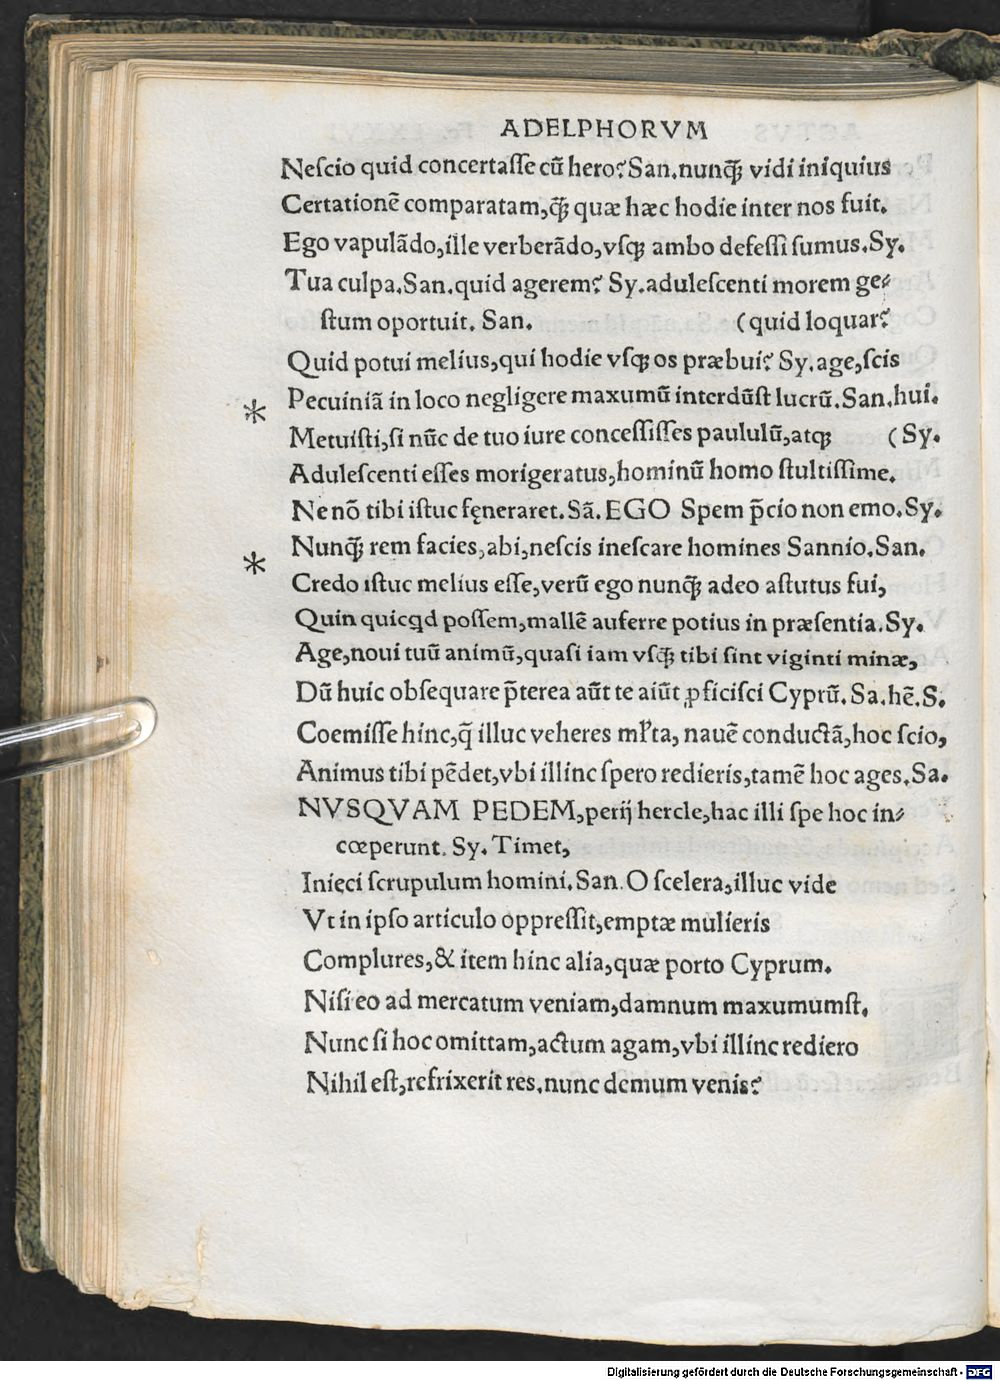 ADELPHORVM
Neſcio quid concertaſſe cū hero? San. nunq̄ȝ vidi iniquius
Certationē comparatam, q̄ȝ quæ hæc hodie inter nos fuit.
Ego vapulādo, ille verberādo, vſqȝ ambo defeſſi ſumus. Sy.
Tua culpa. San. quid agerem? Sy. aduleſcenti morem ge⸗
ſtum oportuit. San. (quid loquar?
Quid potui melius, qui hodie vſqȝ os præbui? Sy. age, ſcis
* Pecuiniā in loco negligere maxumū interdūſt lucrū. San. hui.
Metuiſti, ſi nūc de tuo iure conceſſiſſes paululū, atqȝ (Sy.
Aduleſcenti eſſes morigeratus, hominū homo ſtultiſſime.
Ne nō tibi iſtuc fęneraret. Sā. EGO Spem p̄cio non emo. Sy.
* Nunq̄ȝ rem facies, abi, neſcis ineſcare homines Sannio. San.
Credo iſtuc melius eſſe, verū ego nunq̄ȝ adeo aſtutus fui,
Quin quicqd poſſem, mallē auferre potius in præſentia. Sy.
Age, noui tuū animū, quaſi iam vſq̄ȝ tibi ſint viginti minæ,
Dū huic obſequare p̄terea aūt te aiūt ꝓficiſci Cyprū. Sa. hē. S.
Coemiſſe hinc, q̄ illuc veheres ml̓ta, nauē conductā, hoc ſcio,
Animus tibi pēdet, vbi illinc ſpero redieris, tamē hoc ages. Sa.
NVSQVAM PEDEM, perij hercle, hac illi ſpe hoc in⸗
cœperunt. Sy. Timet,
Inieci ſcrupulum homini. San. O ſcelera, illuc vide
Vt in ipſo articulo oppreſſit, emptæ mulieris
Complures, & item hinc alia, quæ porto Cyprum.
Niſi eo ad mercatum veniam, damnum maxumumſt.
Nunc ſi hoc omittam, actum agam, vbi illinc rediero
Nihil eſt, refrixerit res. nunc demum venis?
Digitalisierung gefördert durch die Deutsche Forschungsgemeinschaft - DFG